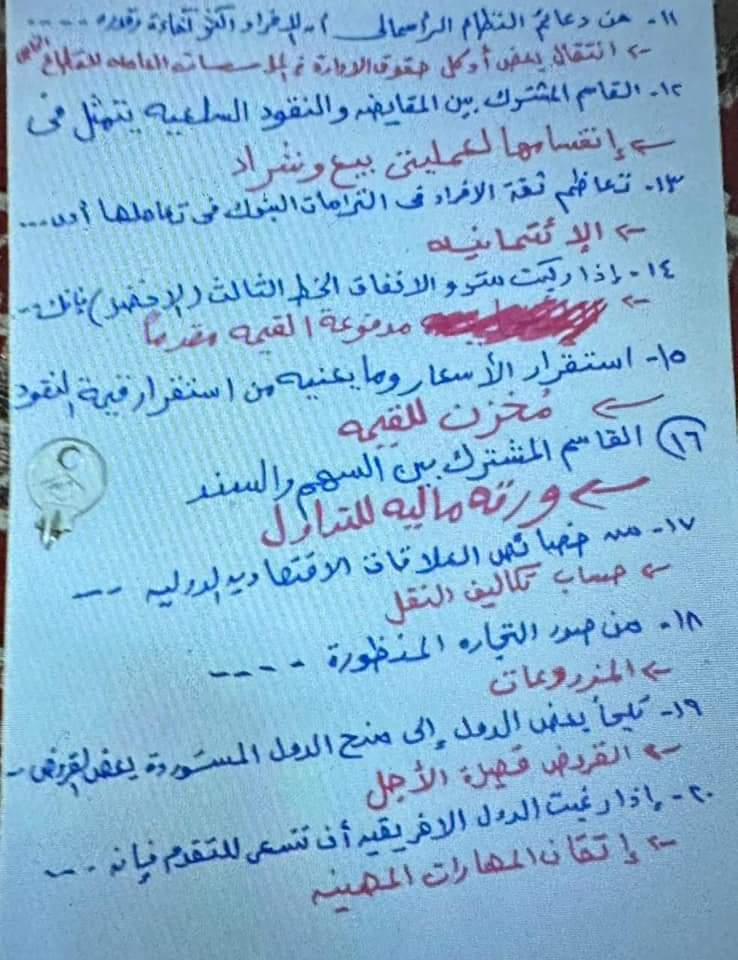 ١١- من دعائم النظام الرأسمالى أن الإفراد أكثر كفاءة وقدره ----
← انتقال بعض أو كل حقوق الإدارة فى المؤسسات العامه للقطاع الخاص
١٢- القاسم المشترك بين المقايضه والنقود السلعيه يتمثل فى
← إنقسامها لعمليتى بيع وشراء
١٣- تعاظم ثقة الافراد فى التزامات البنوك فى تعاملها أدى ...
← الإئتمانيه
١٤- إذا ركبت مترو الانفاق الخط الثالث (الإخضر) فإنك --
← مدفوعة القيمه مقدماً
١٥- استقرار الأسعار وما يعنيه من استقرار قيمة النقود
← مُخزن للقيمه
١٦) القاسم المشترك بين السهم والسند
← ورقه ماليه للتداول
١٧- من خصائص العلاقات الاقتصاديه الدوليه ---
← حساب تكاليف النقل
١٨- من صور التجاره المنظورة ----
← المزروعات
١٩- تلجأ بعض الدول إلى منح الدول المستوردة بعض القروض --
← القروض قصيرة الأجل
٢٠- إذا رغبت الدول الافريقيه أن تسعى للتقدم فإنه ---
← إتقان المهارات المهنيه